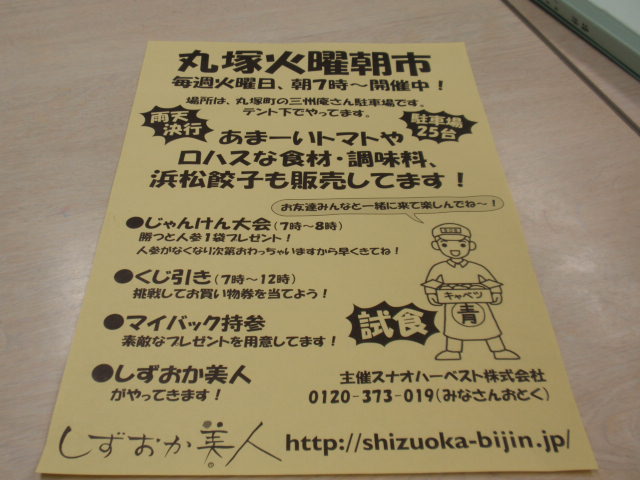 丸塚火曜朝市
毎週火曜日、朝7時～開催中！
場所は、丸塚町の三州庵さん駐車場です。
テント下でやってます。
雨天
決行
駐車場
25台
あまーいトマトや
ロハスな食材・調味料、
浜松餃子も販売してます！
お友達みんなと一緒に来て楽しんでね～！
●じゃんけん大会(7時～8時)
勝つと人参1袋プレゼント！
人参がなくなり次第おわっちゃいますから早くきてね！
●くじ引き(7時～12時)
挑戦してお買い物券を当てよう！
キャベツ
青
試食
●マイバック持参
素敵なプレゼントを用意してます！
●しずおか美人
がやってきます！
主催スナオハーベスト株式会社
0120-373-019(みなさんおとく)
しずおか美人
http://shizuoka-bijin.jp/